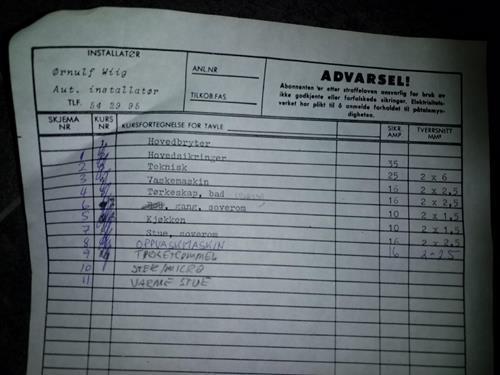 INSTALLATØR
Ørnulf Wiig
Aut. installatør
TLF. 54 29 95
ANL.NR
TILKOB.FAS.
ADVARSEL!
Abonnenten er etter straffeloven ansvarlig for bruk av
ikke godkjente eller forfalskede sikringer. Elektrisitets-
verket har plikt til å anmelde forholdet til påtalemyn-
digheten.
SKJEMA NR KURS NR KURSFORTEGNELSE FOR TAVLE SIKR. AMP TVERRSNITT MM²
Hovedbryter
1 Hovedsikringer 35
2 Teknisk 25 2 x 6
3 Vaskemaskin 16 2 x 2,5
4 Tørkeskap, bad 16 2 x 2,5
6 gang, soverom 10 2 x 1,5
5 Kjøkken 16 2 x 2,5
7 Stue, soverom 10 2 x 1,5
8 OPPVASKMASKIN 16 2 x 2,5
9 TØRKETROMMEL 16 2-25
10 STEK/MICRO
11 VARME STUE